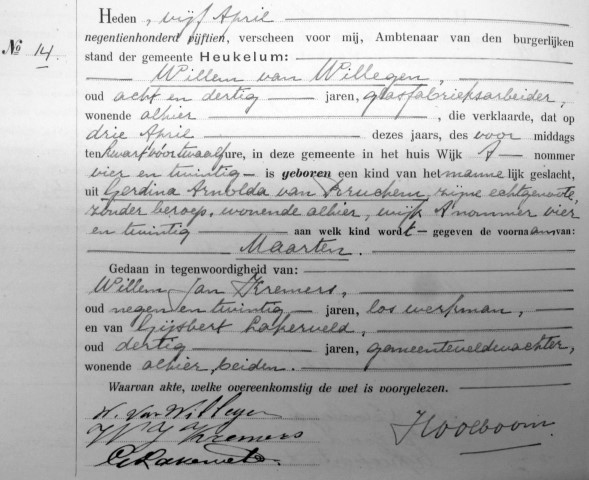 Heden, vijf April
negentienhonderd vijftien, verscheen voor mij, Ambtenaar van den burgerlijken
Nº 14.
stand der gemeente Heukelum:
Willem van Willegen,
oud acht en dertig jaren, glasfabrieksarbeider,
wonende alhier, die verklaarde, dat op
drie April dezes jaars, des voor middags
ten kwart voor twaalf ure, in deze gemeente in het huis Wijk A nommer
vier en twintig is geboren een kind van het mannelijk geslacht,
uit Gerdina Arnolda van Kruchem, zijne echtgenoote,
zonder beroep, wonende alhier, wijk A nommer vier
en twintig aan welk kind wordt gegeven de voornaam van:
Maarten.
Gedaan in tegenwoordigheid van:
Willem Jan Kremers,
oud negen en twintig jaren, los werkman,
en van Gijsbert Lakerveld,
oud dertig jaren, gemeenteveldwachter,
wonende alhier, beiden.
Waarvan akte, welke overeenkomstig de wet is voorgelezen.
W. van Willegen
W J Kremers
G Lakerveld
Hooiboom